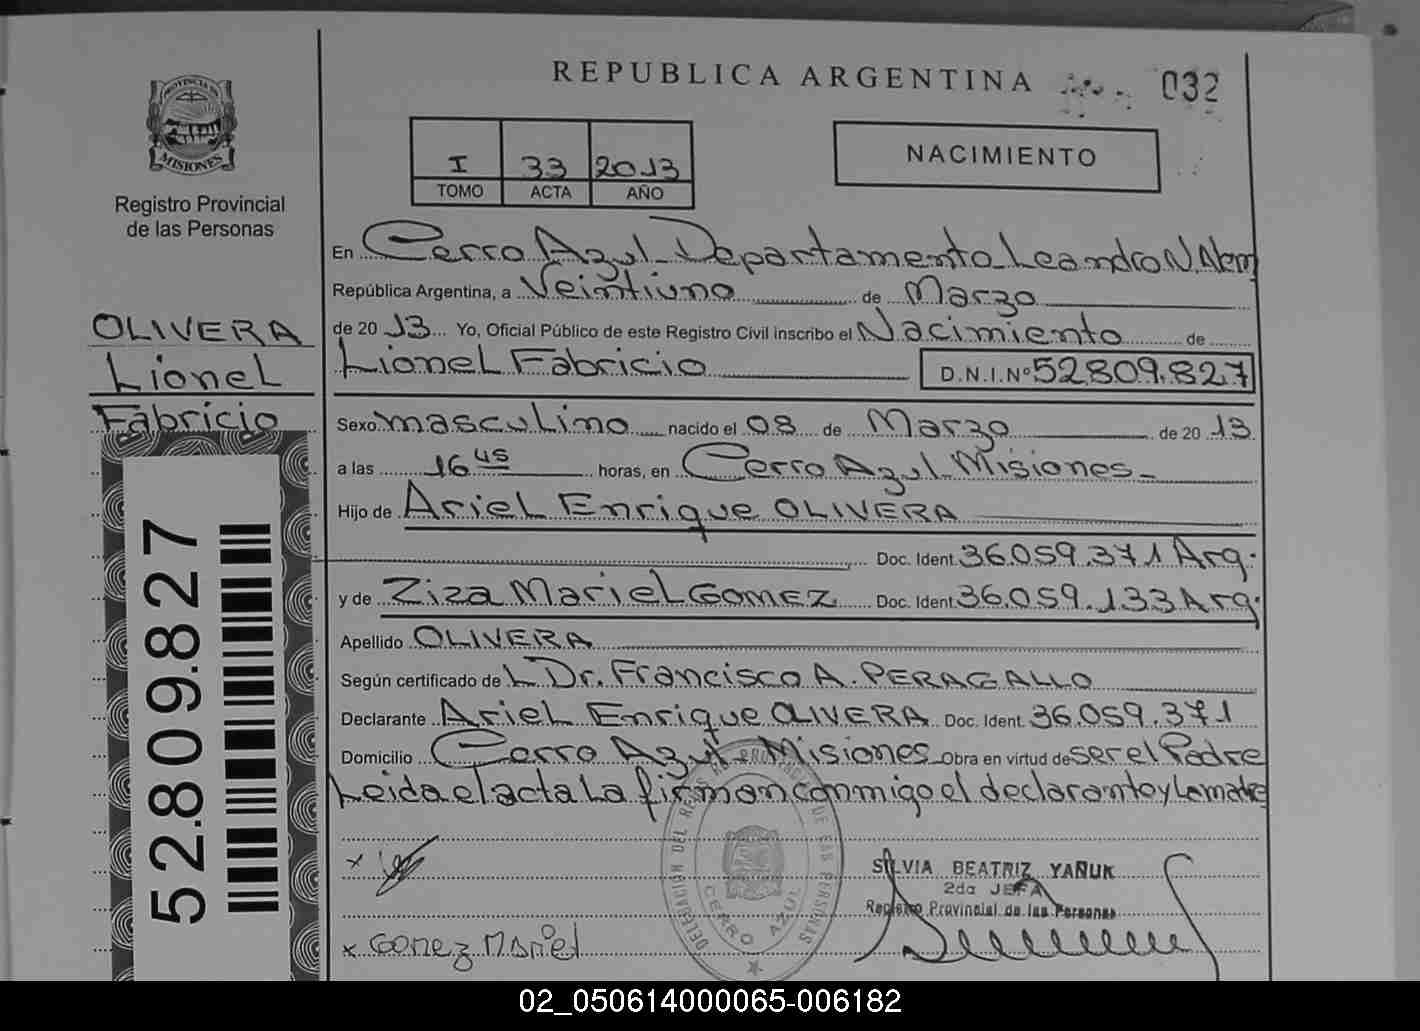 REPUBLICA ARGENTINA
032
PROVINCIA DE
MISIONES
Registro Provincial
de las Personas
I 33 2013
TOMO ACTA AÑO
NACIMIENTO
En Cerro Azul - Departamento Leandro N. Alem
República Argentina, a Veintiuno de Marzo
de 2013 Yo, Oficial Público de este Registro Civil inscribo el Nacimiento de
Lionel Fabricio D.N.I.Nº 52809.827
OLIVERA
Lionel
Fabricio
52.809.827
Sexo masculino nacido el 08 de Marzo de 2013
a las 16 45 horas, en Cerro Azul Misiones -
Hijo de Ariel Enrique OLIVERA
Doc. Ident. 36.059.371 Arg.
y de Ziza Mariel GOMEZ Doc. Ident. 36.059.133 Arg.
Apellido OLIVERA
Según certificado de L Dr. Francisco A. PERAGALLO
Declarante Ariel Enrique OLIVERA Doc. Ident. 36.059.371
Domicilio Cerro Azul - Misiones Obra en virtud de ser el Padre
Leida el acta La firman conmigo el declarante y La madre
DELEGACIÓN DEL REG. PROVINCIAL DE LAS PERSONAS
CERRO AZUL
SILVIA BEATRIZ YAÑUK
2da JEFA
Registro Provincial de las Personas
x
x Gomez Mariel
02_050614000065-006182